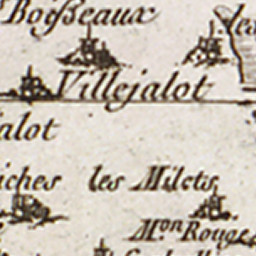 Boisseaux
les
Villejalot
alot
iches les Milets
M.on Rouge